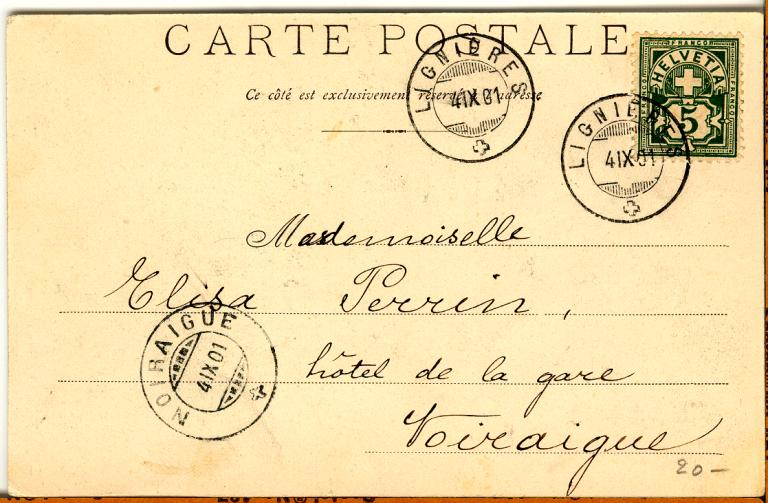 CARTE POSTALE
Ce côté est exclusivement réservé à l'adresse
LIGNIÈRES
4 IX 01
LIGNIÈRES
4 IX 01
FRANCO
HELVETIA
FRANCO
5
Mademoiselle
Elisa Perrin,
NOIRAIGUE
4 IX 01
hôtel de la gare
Noiraigue
20-